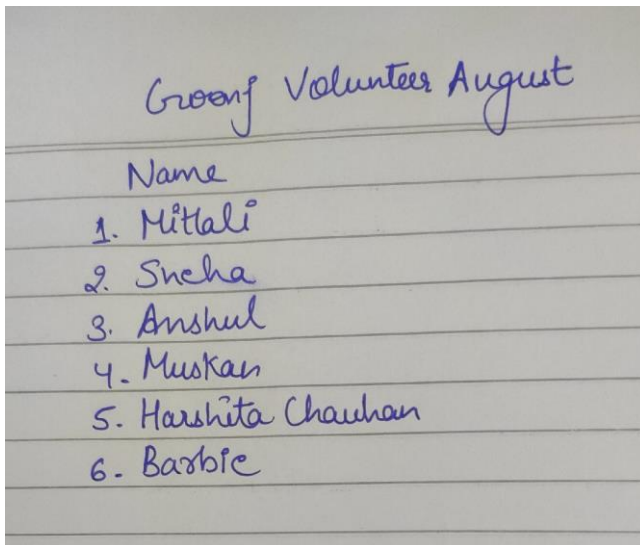 Goonj Volunteer August
Name
1. Mitlali
2. Sneha
3. Anshul
4. Muskan
5. Harshita Chauhan
6. Barbie